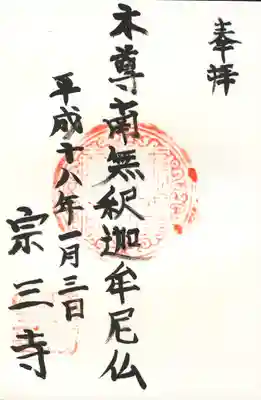 奉拝
本尊南無釈迦牟尼仏
平成十八年一月三日
宗三寺